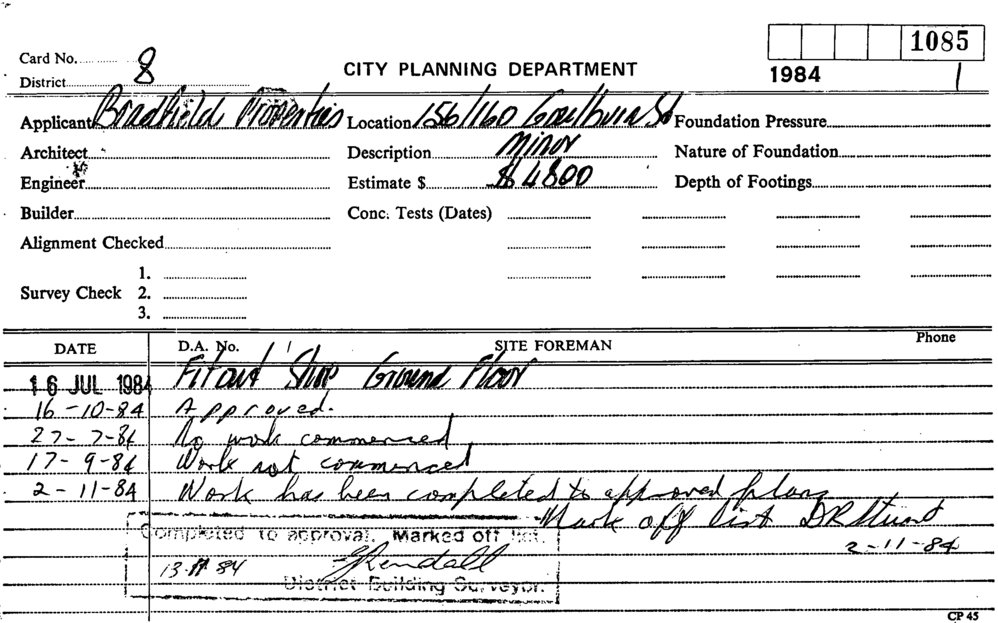 1085
Card No. 8
CITY PLANNING DEPARTMENT
1984 1
District
Applicant Bradfield Properties Location 156/160 Goulburn St Foundation Pressure
Architect Description Minor Nature of Foundation
Engineer Estimate $ $4800 Depth of Footings
Builder Conc. Tests (Dates)
Alignment Checked
1.
Survey Check 2.
3.
DATE D.A. No. SITE FOREMAN Phone
16 JUL 1984 Fitout Shop Ground Floor
16-10-84 Approved.
27-7-84 No work commenced
17-9-84 Work not commenced
2-11-84 Work has been completed to approved plans
Mark off list DR Stuart
Completed to approval. Marked off list.
2-11-84
13.11.84 Kendall
District Building Surveyor.
CP 45